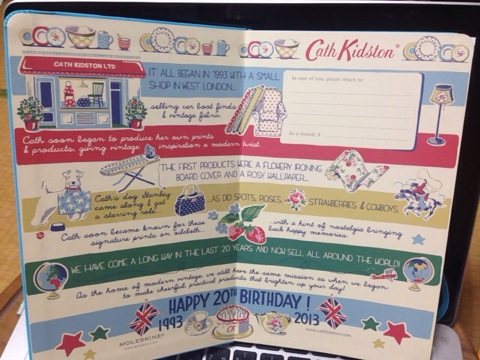 Cath Kidston®
CATH KIDSTON LTD
IT ALL BEGAN IN 1993 WITH A SMALL
SHOP IN WEST LONDON...
In case of loss, please return to:
selling car boot finds
& vintage fabric.
As a reward: $
Cath soon began to produce her own prints
& products, giving vintage inspiration a modern twist.
THE FIRST PRODUCTS WERE A FLOWERY IRONING
BOARD COVER AND A ROSY WALLPAPER...
Cath's dog Stanley
came along & got
a starring role.
...AS DID SPOTS, ROSES, STRAWBERRIES & COWBOYS.
Cath soon became known for these
signature prints on oilcloth...
with a hint of nostalgia bringing
back happy memories.
WE HAVE COME A LONG WAY IN THE LAST 20 YEARS AND NOW SELL ALL AROUND THE WORLD!
As the home of modern vintage, we still have the same mission as when we began
to make cheerful practical products that brighten up your day!
HAPPY 20TH BIRTHDAY!
1993 2013
MOLESKINE®